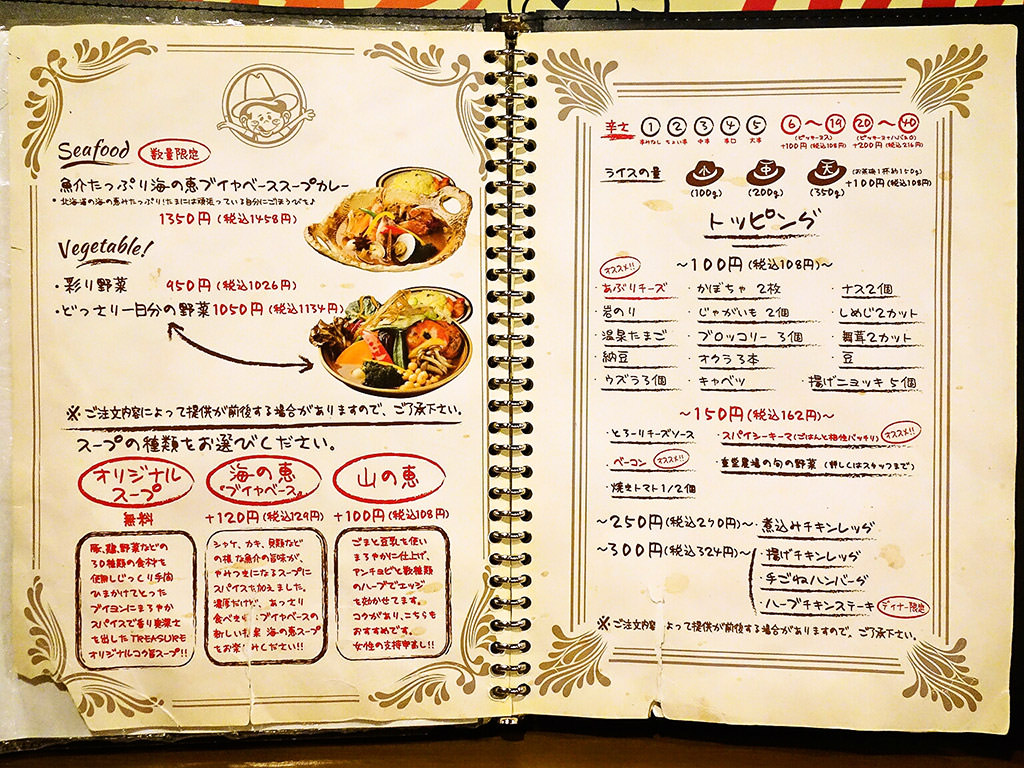 Seafood 数量限定
魚介たっぷり海の恵ブイヤベーススープカレー
*北海道の海の恵みたっぷり!たまには頑張っている自分にごほうびを♪
1350円(税込1458円)
Vegetable!
・彩り野菜 950円(税込1026円)
・どっさり一日分の野菜1050円(税込1134円)
※ご注文内容によって提供が前後する場合がありますので、ご了承下さい。
スープの種類をお選びください。
オリジナル
スープ
無料
豚、鶏、野菜などの
30種類の食材を
使用しじっくり手間
ひまかけてとった
ブイヨンにまろやか
スパイスで香り
を出したTREASURE
オリジナルコク旨スープ!!
海の恵
『ブイヤベース』
+120円(税込129円)
シャケ、カキ、貝類など
の様な魚介の旨味が、
やみつきになるスープに
スパイスを加えました。
濃厚だけど、あっさり
食べ ブイヤベースの
新しい 海の恵スープ
をお楽しみください!!
山の恵
+100円(税込108円)
ごまと豆乳を使い
まろやかに仕上げ、
アンチョビと数種類
のハーブでエッジ
を効かせてます。
コクがあり、こちらも
おすすめです。
女性の支持率高し!!
辛さ 1 2 3 4 5 6〜19 20〜40
辛みなし ちょい辛 中辛 辛口 大辛
+100円(税込108円) +200円(税込216円)
ライスの量 小 中 大 (お茶碗1杯約150g)
(100g) (200g) (350g) +100円(税込108円)
トッピング
オススメ!! 〜100円(税込108円)〜
・あぶりチーズ ・かぼちゃ 2枚 ・ナス2個
・岩のり ・じゃがいも 2個 ・しめじ2カット
・温泉たまご ・ブロッコリー 3個 ・舞茸2カット
・納豆 ・オクラ3本 ・豆
・ウズラ3個 ・キャベツ ・揚げニョッキ 5個
〜150円(税込162円)〜
・とろーりチーズソース ・スパイシーキーマ(ごはんと相性バッチリ) オススメ!!
・ベーコン オススメ!! 農場の旬の野菜 (詳しくはスタッフまで)
・焼きトマト1/2個
〜250円(税込270円)〜 ・煮込みチキンレッグ
〜300円(税込324円)〜 ・揚げチキンレッグ
・手ごねハンバーグ
・ハーブチキンステーキ ディナー限定
※ご注文内容によって提供が前後する場合がありますので。ご了承下さい。